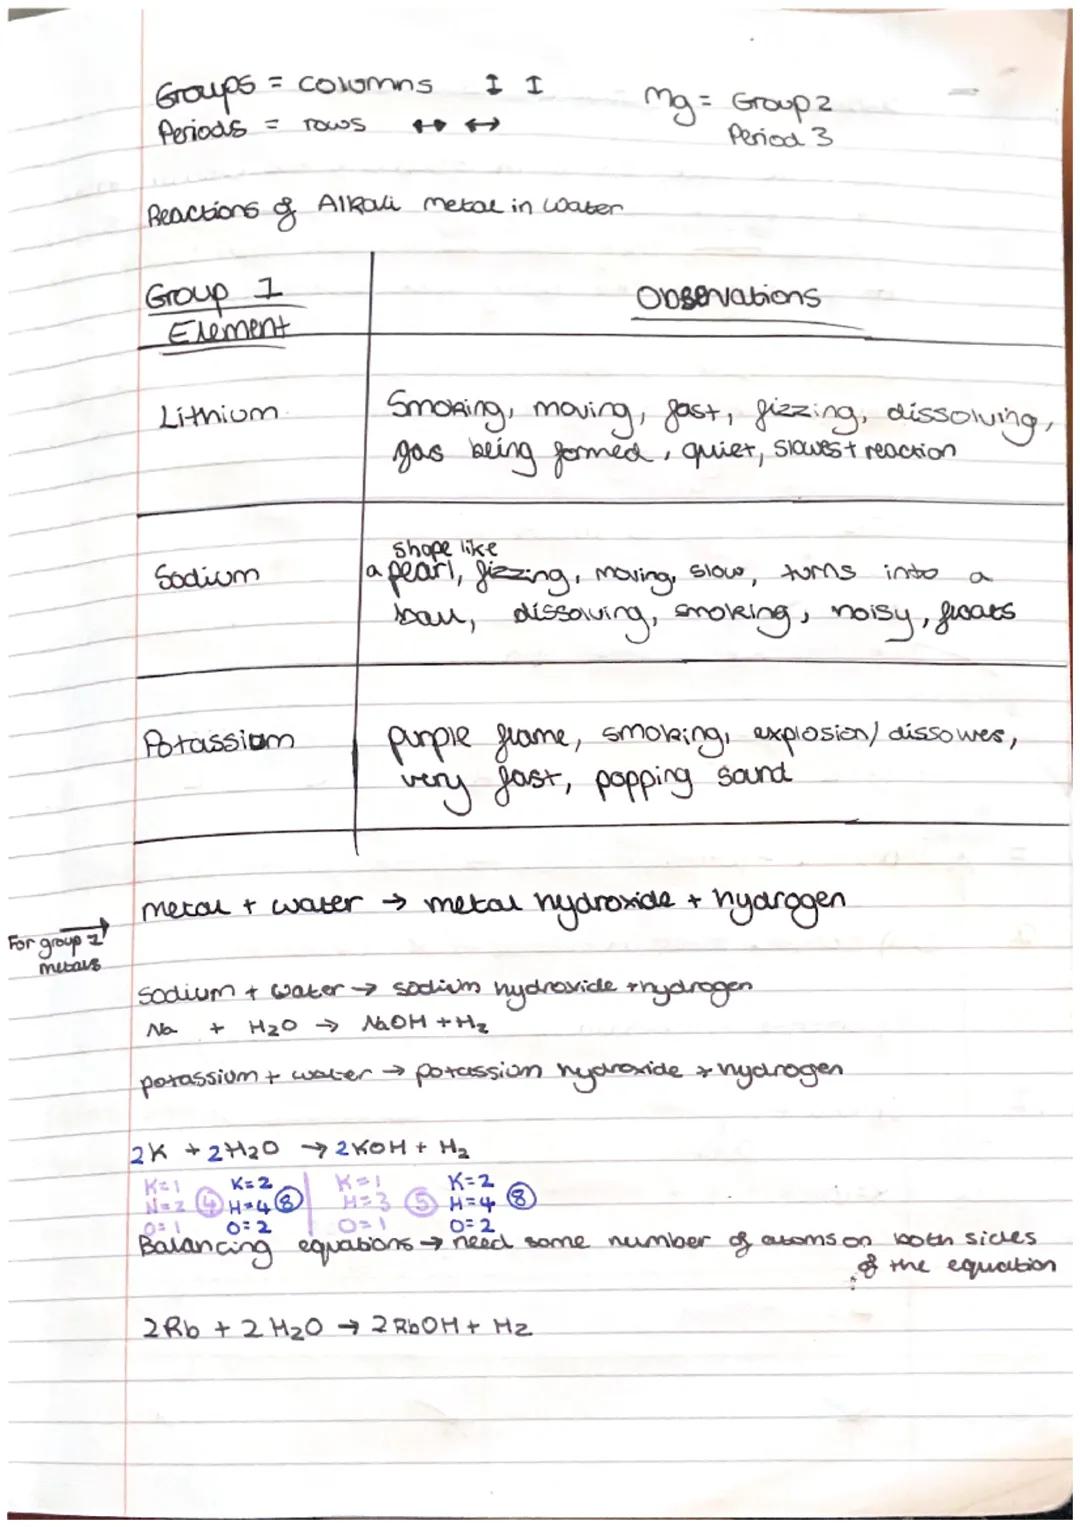 Groups = columns ↕ ↕
Periods = rows ↔ ↔
Mg = Group 2
Period 3
Reactions of Alkali metal in water
Group 1
Element
Observations
Lithium
Smoking, moving, fast, fizzing, dissolving,
gas being formed, quiet, slowest reaction
Sodium
shape like
a pearl, fizzing, moving, slow, turns into a
ball, dissolving, smoking, noisy, floats
Potassium
purple flame, smoking, explosion/dissolves,
very fast, popping sound
metal + water → metal hydroxide + hydrogen
For group 1
metals
sodium + water → sodium hydroxide + hydrogen
Na + H2O → NaOH + H2
potassium + water → potassium hydroxide + hydrogen
2K + 2H2O → 2KOH + H2
K=1 K=2 K=1 K=2
H=2 4 H=4 8 H=3 5 H=4 8
O=1 O=2 O=1 O=2
Balancing equations → need same number of atoms on both sides
of the equation
2Rb + 2H2O → 2RbOH + H2